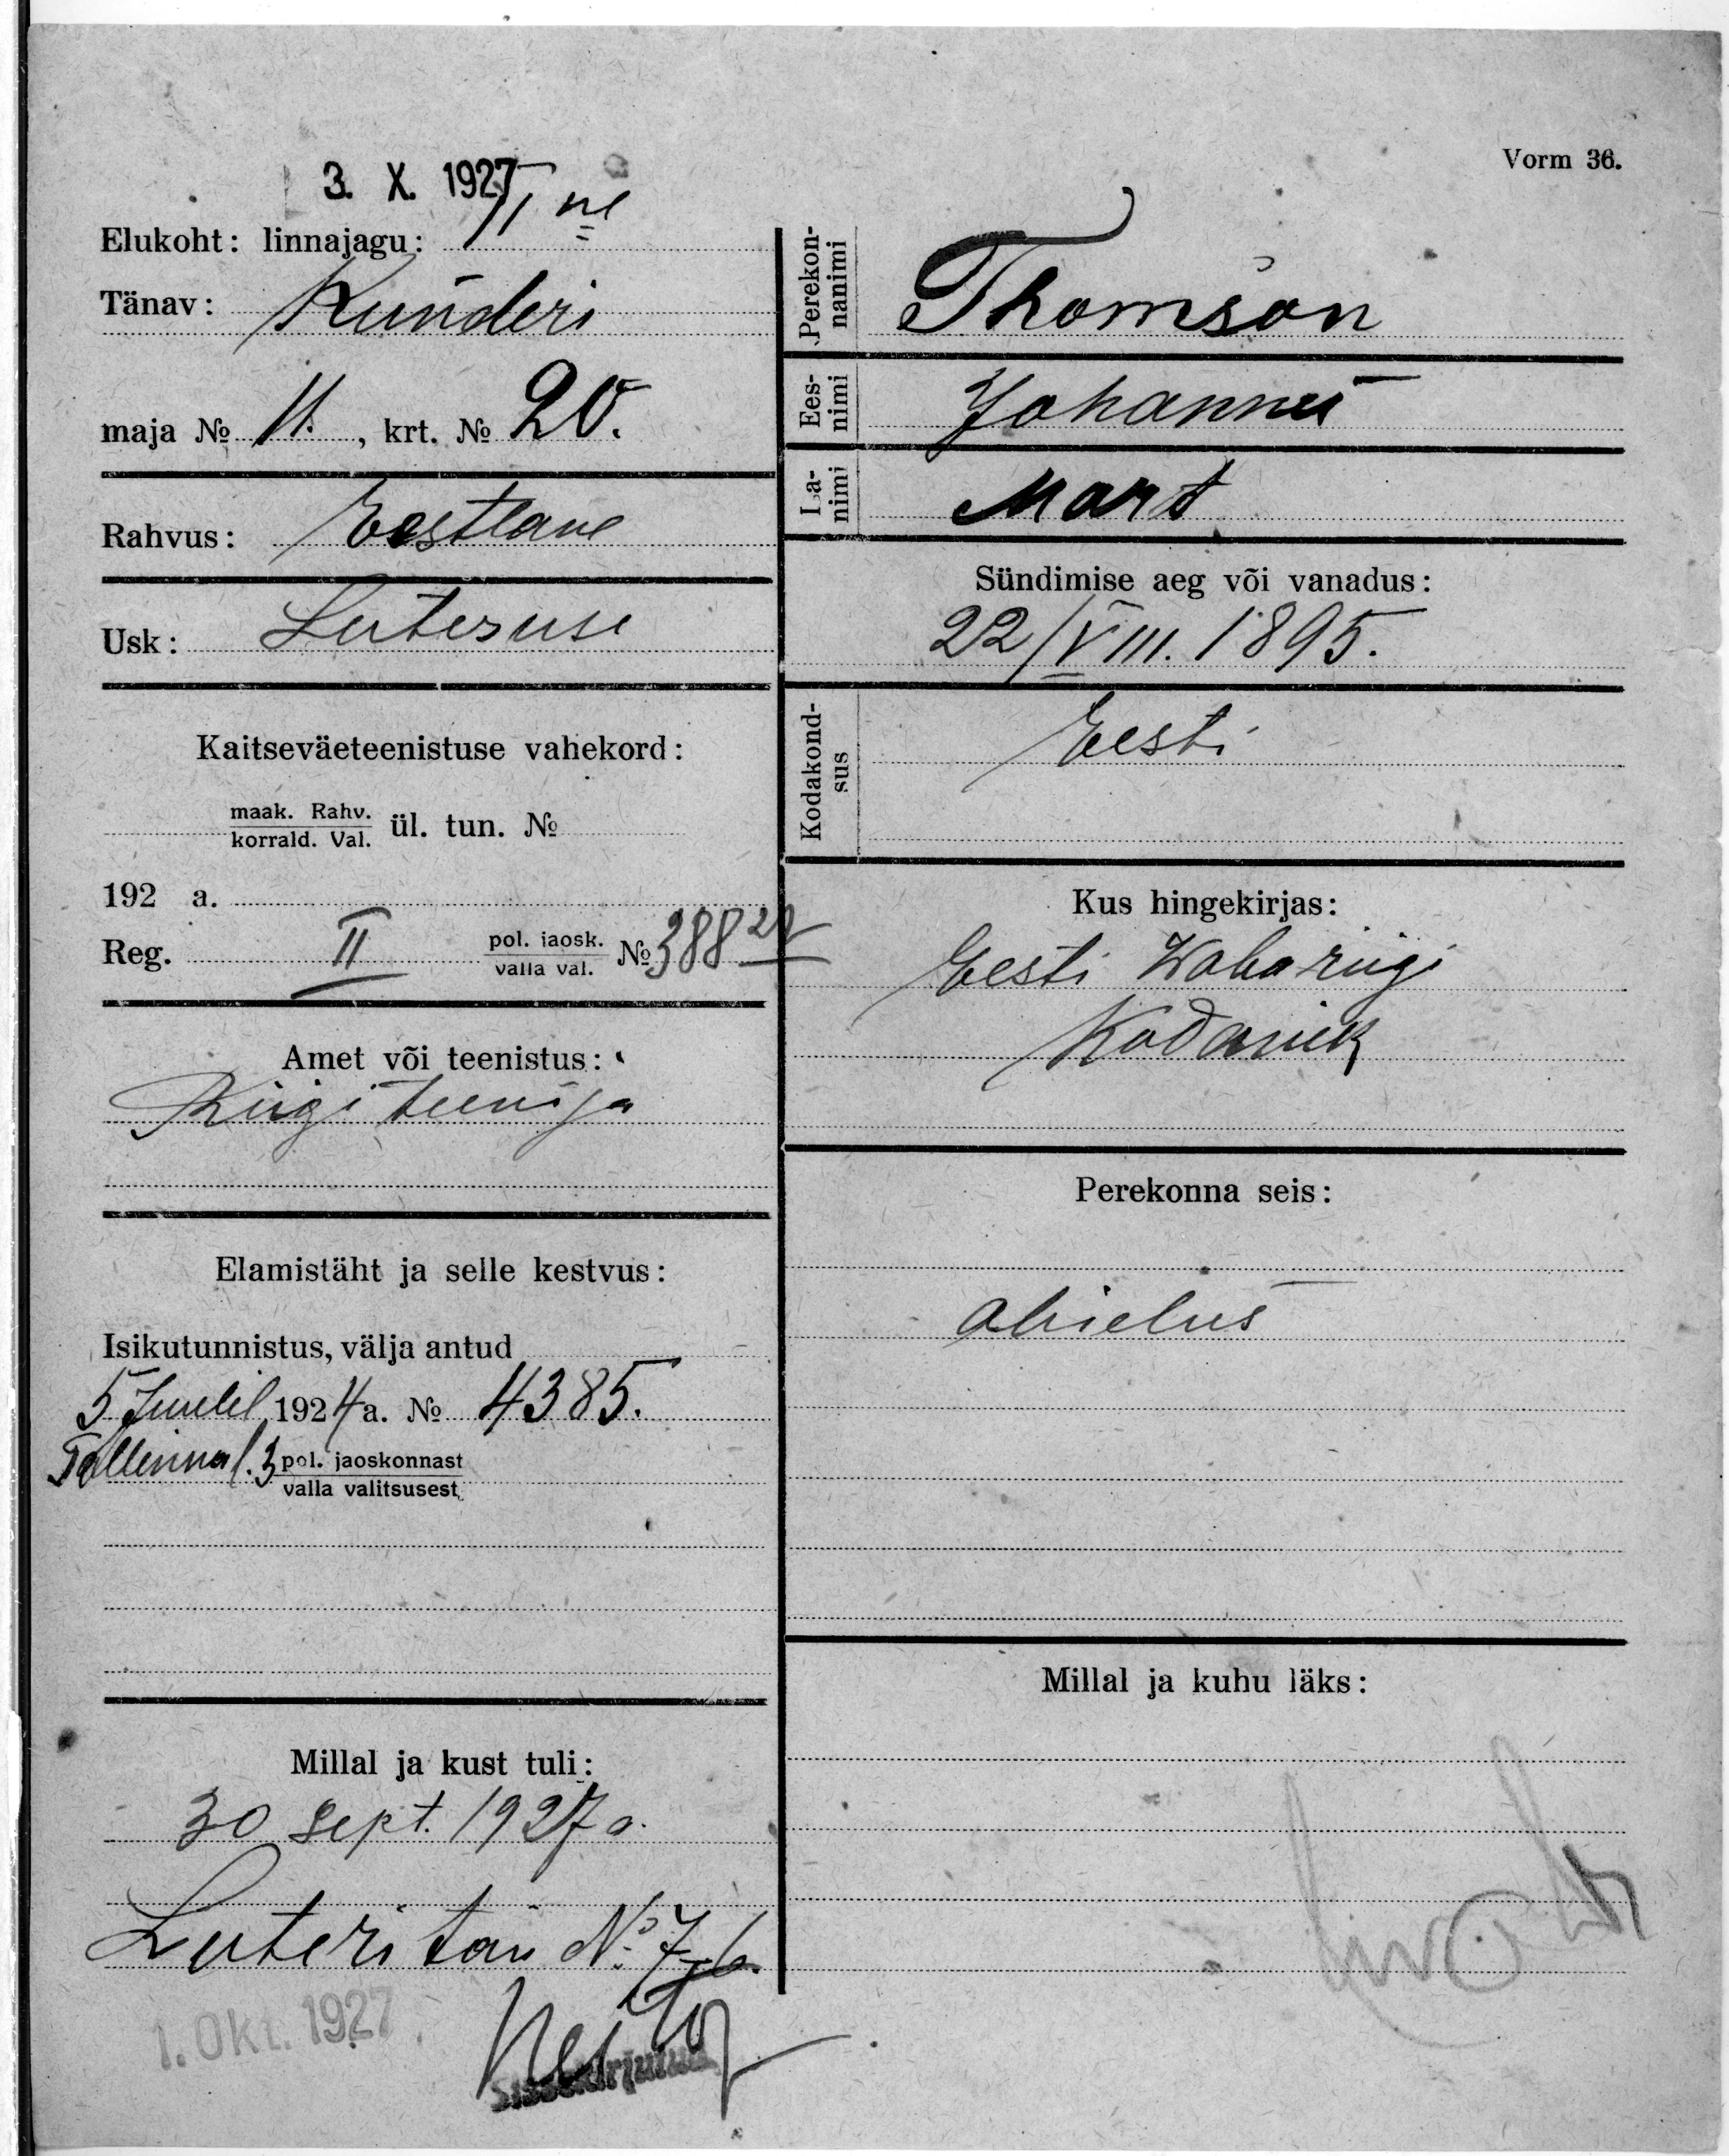 Vorm 36.
3. X. 1927
Elukoht: linnajagu: II ne
Tänav: Kunderi
maja № 11. , krt. № 20.
Rahvus: Eestlane
Usk: Luteruse
Kaitseväeteenistuse vahekord:
maak. Rahv.
korrald. Val. ül. tun. №
192 a.
Reg. II pol. jaosk.
valla val. № 388
Amet või teenistus:
Riigi teenija
Elamistäht ja selle kestvus:
Isikutunnistus, välja antud
5 Juulil 1924 a. № 4385.
Tallinna l. 3 pol. jaoskonnast
valla valitsusest
Millal ja kust tuli:
30 sept. 1927 a.
Luteri tän № 7-6.
1. Okt. 1927.
Sissekirjutud
Perekon-
nanimi
Thomson
Ees-
nimi
Johannes
La-
nimi
Mart
Sündimise aeg või vanadus:
22/VIII. 1895.
Kodakond-
sus
Eesti
Kus hingekirjas:
Eesti Wabariigi
Kodanik
Perekonna seis:
abielus
Millal ja kuhu läks: